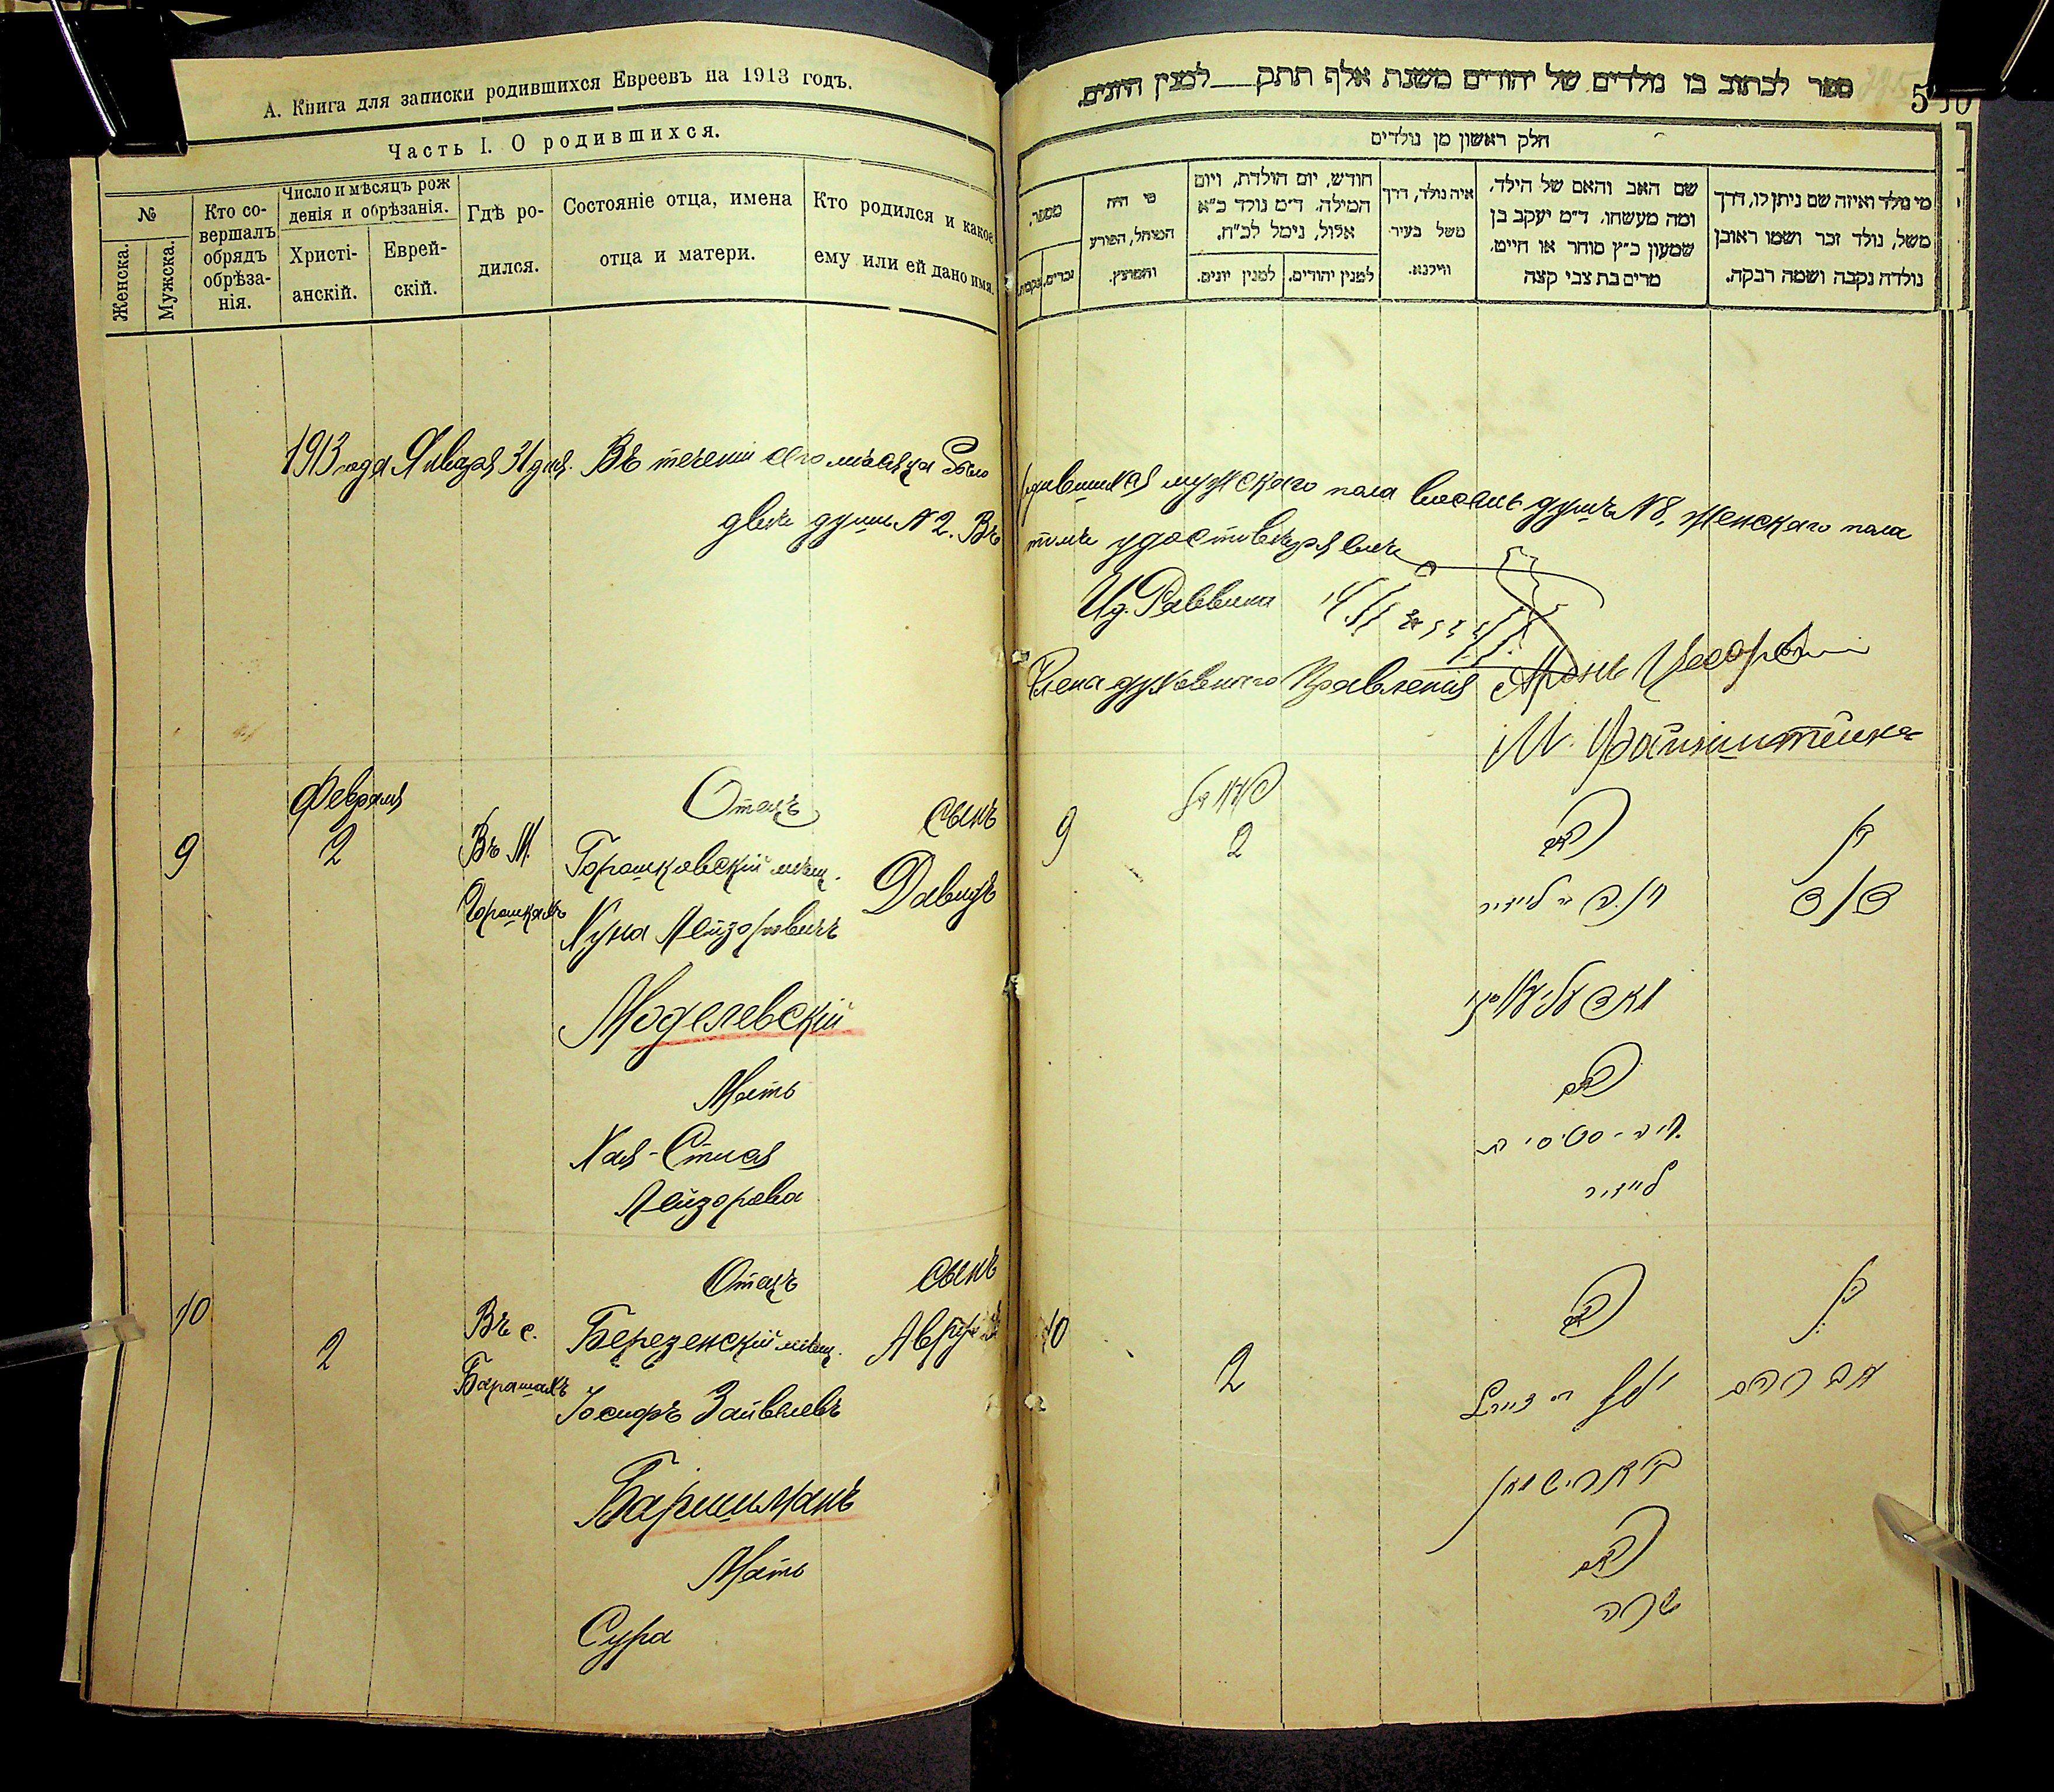 А. Книга для записки родившихся Евреевъ на 1913 годъ.
Часть I. О родившихся.
№
Женска.
Мужска.
Кто со-
вершалъ
обрядъ
обрѣза-
нія.
Число и мѣсяцъ рож
денія и обрѣзанія.
Христі-
анскій.
Еврей-
скій.
Гдѣ ро-
дился.
Состояніе отца, имена
отца и матери.
Кто родился и какое
ему или ей дано имя.
1913 года Января 31 дня. Въ теченіи сего мѣсяца было
двѣ души № 2. Въ
Февраля
9
2
Въ М.
Горошкахъ
Отецъ
Горошковскій мѣщ.
Хуна Лейзоровичъ
Моделевскій
Мать
Хая-Стися
Лейзорова
сынъ
Давидъ
10
2
Въ с.
Барашахъ
Отецъ
Березенскій мѣщ.
Іосифъ Зайвелевъ
Баришманъ
Мать
Сура
сынъ
ספר לכתוב בו נולדים של יהודים משנת אלף תתק למנין היונים.
חלק ראשון מן נולדים
מספר.
זכרים.
נקבות.
מי היה
המוהל, הפורע
והמוצץ.
חודש, יום הולדת, ויום
המילה. ד״מ נולד כ״א
אלול, נימל לכ״ח.
למנין יונים.
למנין יהודים.
איה נולד, דרך
משל בעיר
ווילנא.
שם האב והאם של הילד,
ומה מעשהו. ד״מ יעקב בן
שמעון כ״ץ סוחר או חייט.
מרים בת צבי קצה
מי נולד ואיזה שם ניתן לו, דרך
משל, נולד זכר ושמו ראובן
נולדה נקבה ושמה רבקה.
родившихся мужскаго пола восемь душъ № 8, женскаго пола
томъ удостовѣряемъ
Ид. Раввина
Члена духовнаго Правленія Аронъ
М. Файнштейнъ
9
2
האב
האם
חיה - סטיסי בת
לייזר
בן
דוד
10
2
האב
בארישמאן
האם
שרה
בן
אברהם